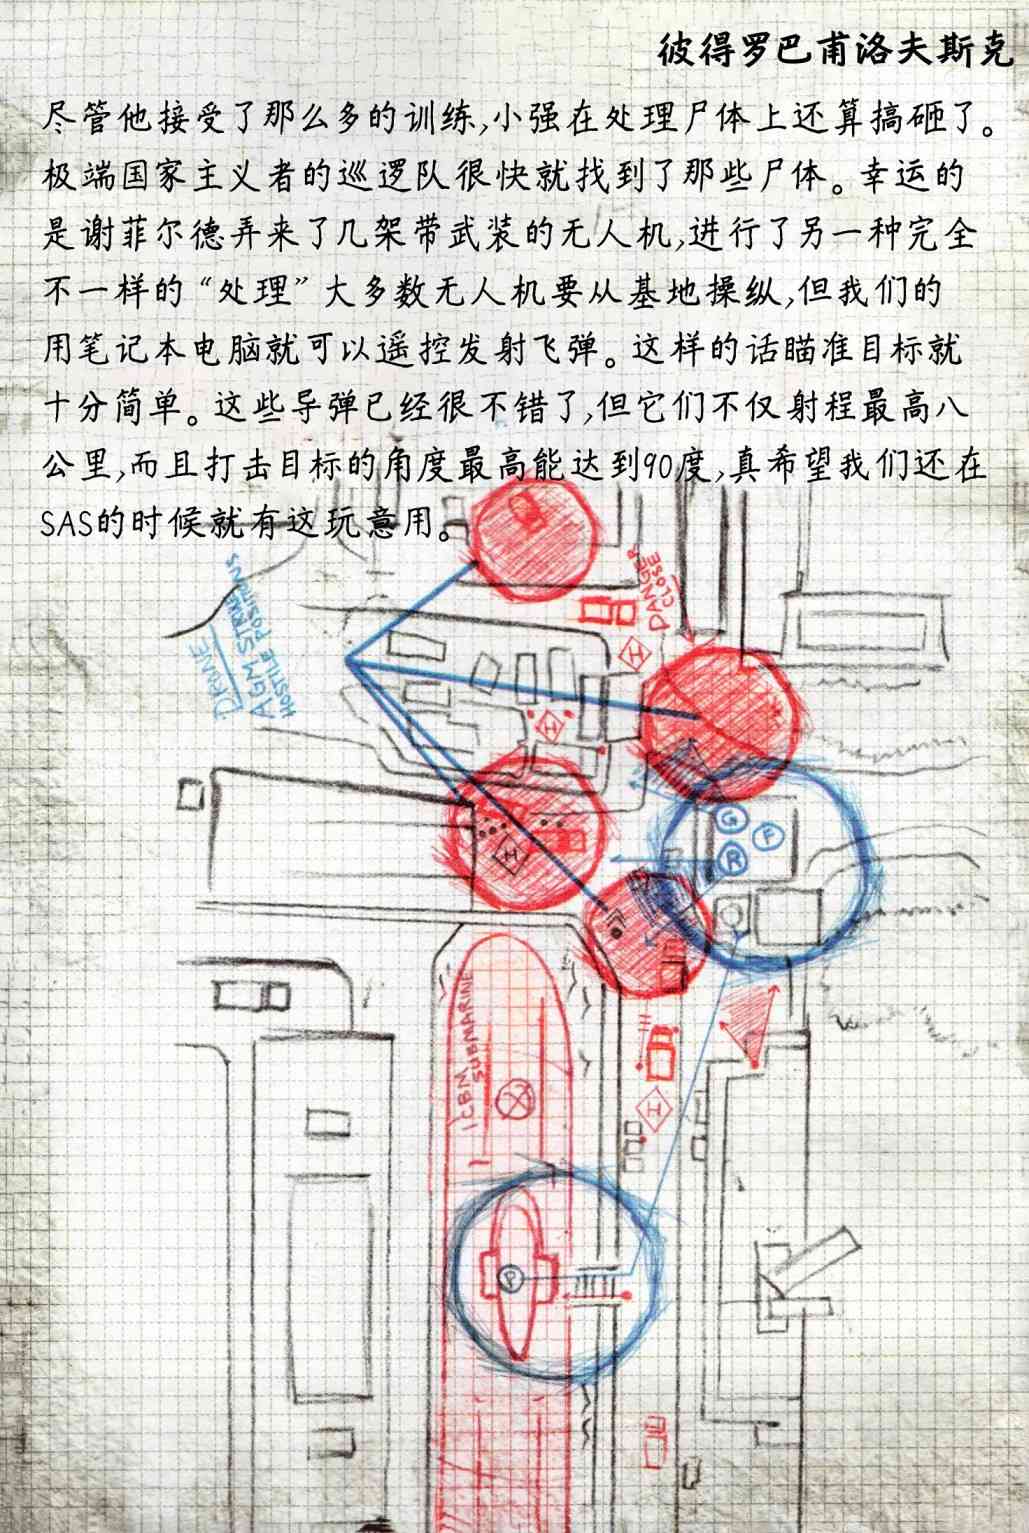 彼得罗巴甫洛夫斯克
尽管他接受了那么多的训练,小强在处理尸体上还算搞砸了。
极端国家主义者的巡逻队很快就找到了那些尸体。幸运的
是谢菲尔德弄来了几架带武装的无人机,进行了另一种完全
不一样的“处理”大多数无人机要从基地操纵,但我们的
用笔记本电脑就可以遥控发射飞弹。这样的话瞄准目标就
十分简单。这些导弹已经很不错了,但它们不仅射程最高八
公里,而且打击目标的角度最高能达到90度,真希望我们还在
SAS的时候就有这玩意用。
DANGER
CLOSE
DRONE
AGM STRIKE
HOSTILE POSITIONS
H
H
G
F
R
H
ICBM
SUBMARINE
H
P